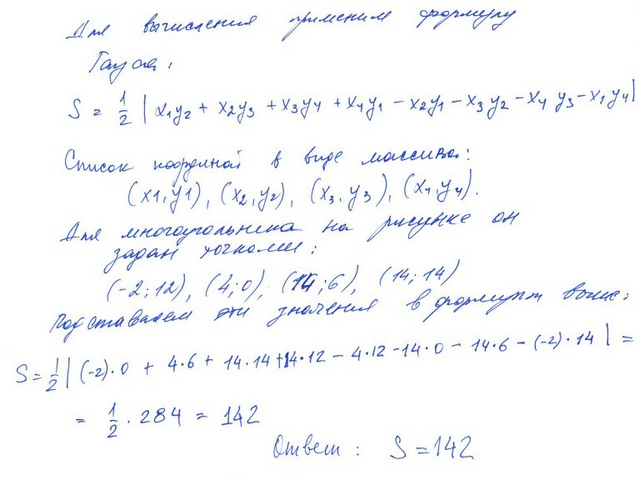 Для вычисления применим формулу
Гауса:
S = 1/2 | x₁y₂ + x₂y₃ + x₃y₄ + x₄y₁ − x₂y₁ − x₃y₂ − x₄y₃ − x₁y₄ |
Список координат в виде массива:
(x1, y1), (x₂, y₂), (x₃, y₃), (x₄, y₄).
Для многоугольника на рисунке он
задан точками:
(-2; 12), (4; 0), (14; 6), (14; 14)
Подставляем эти значения в формулу выше:
S = 1/2 | (-2)·0 + 4·6 + 14·14 + 14·12 − 4·12 − 14·0 − 14·6 − (-2)·14 | =
= 1/2 · 284 = 142
Ответ: S = 142